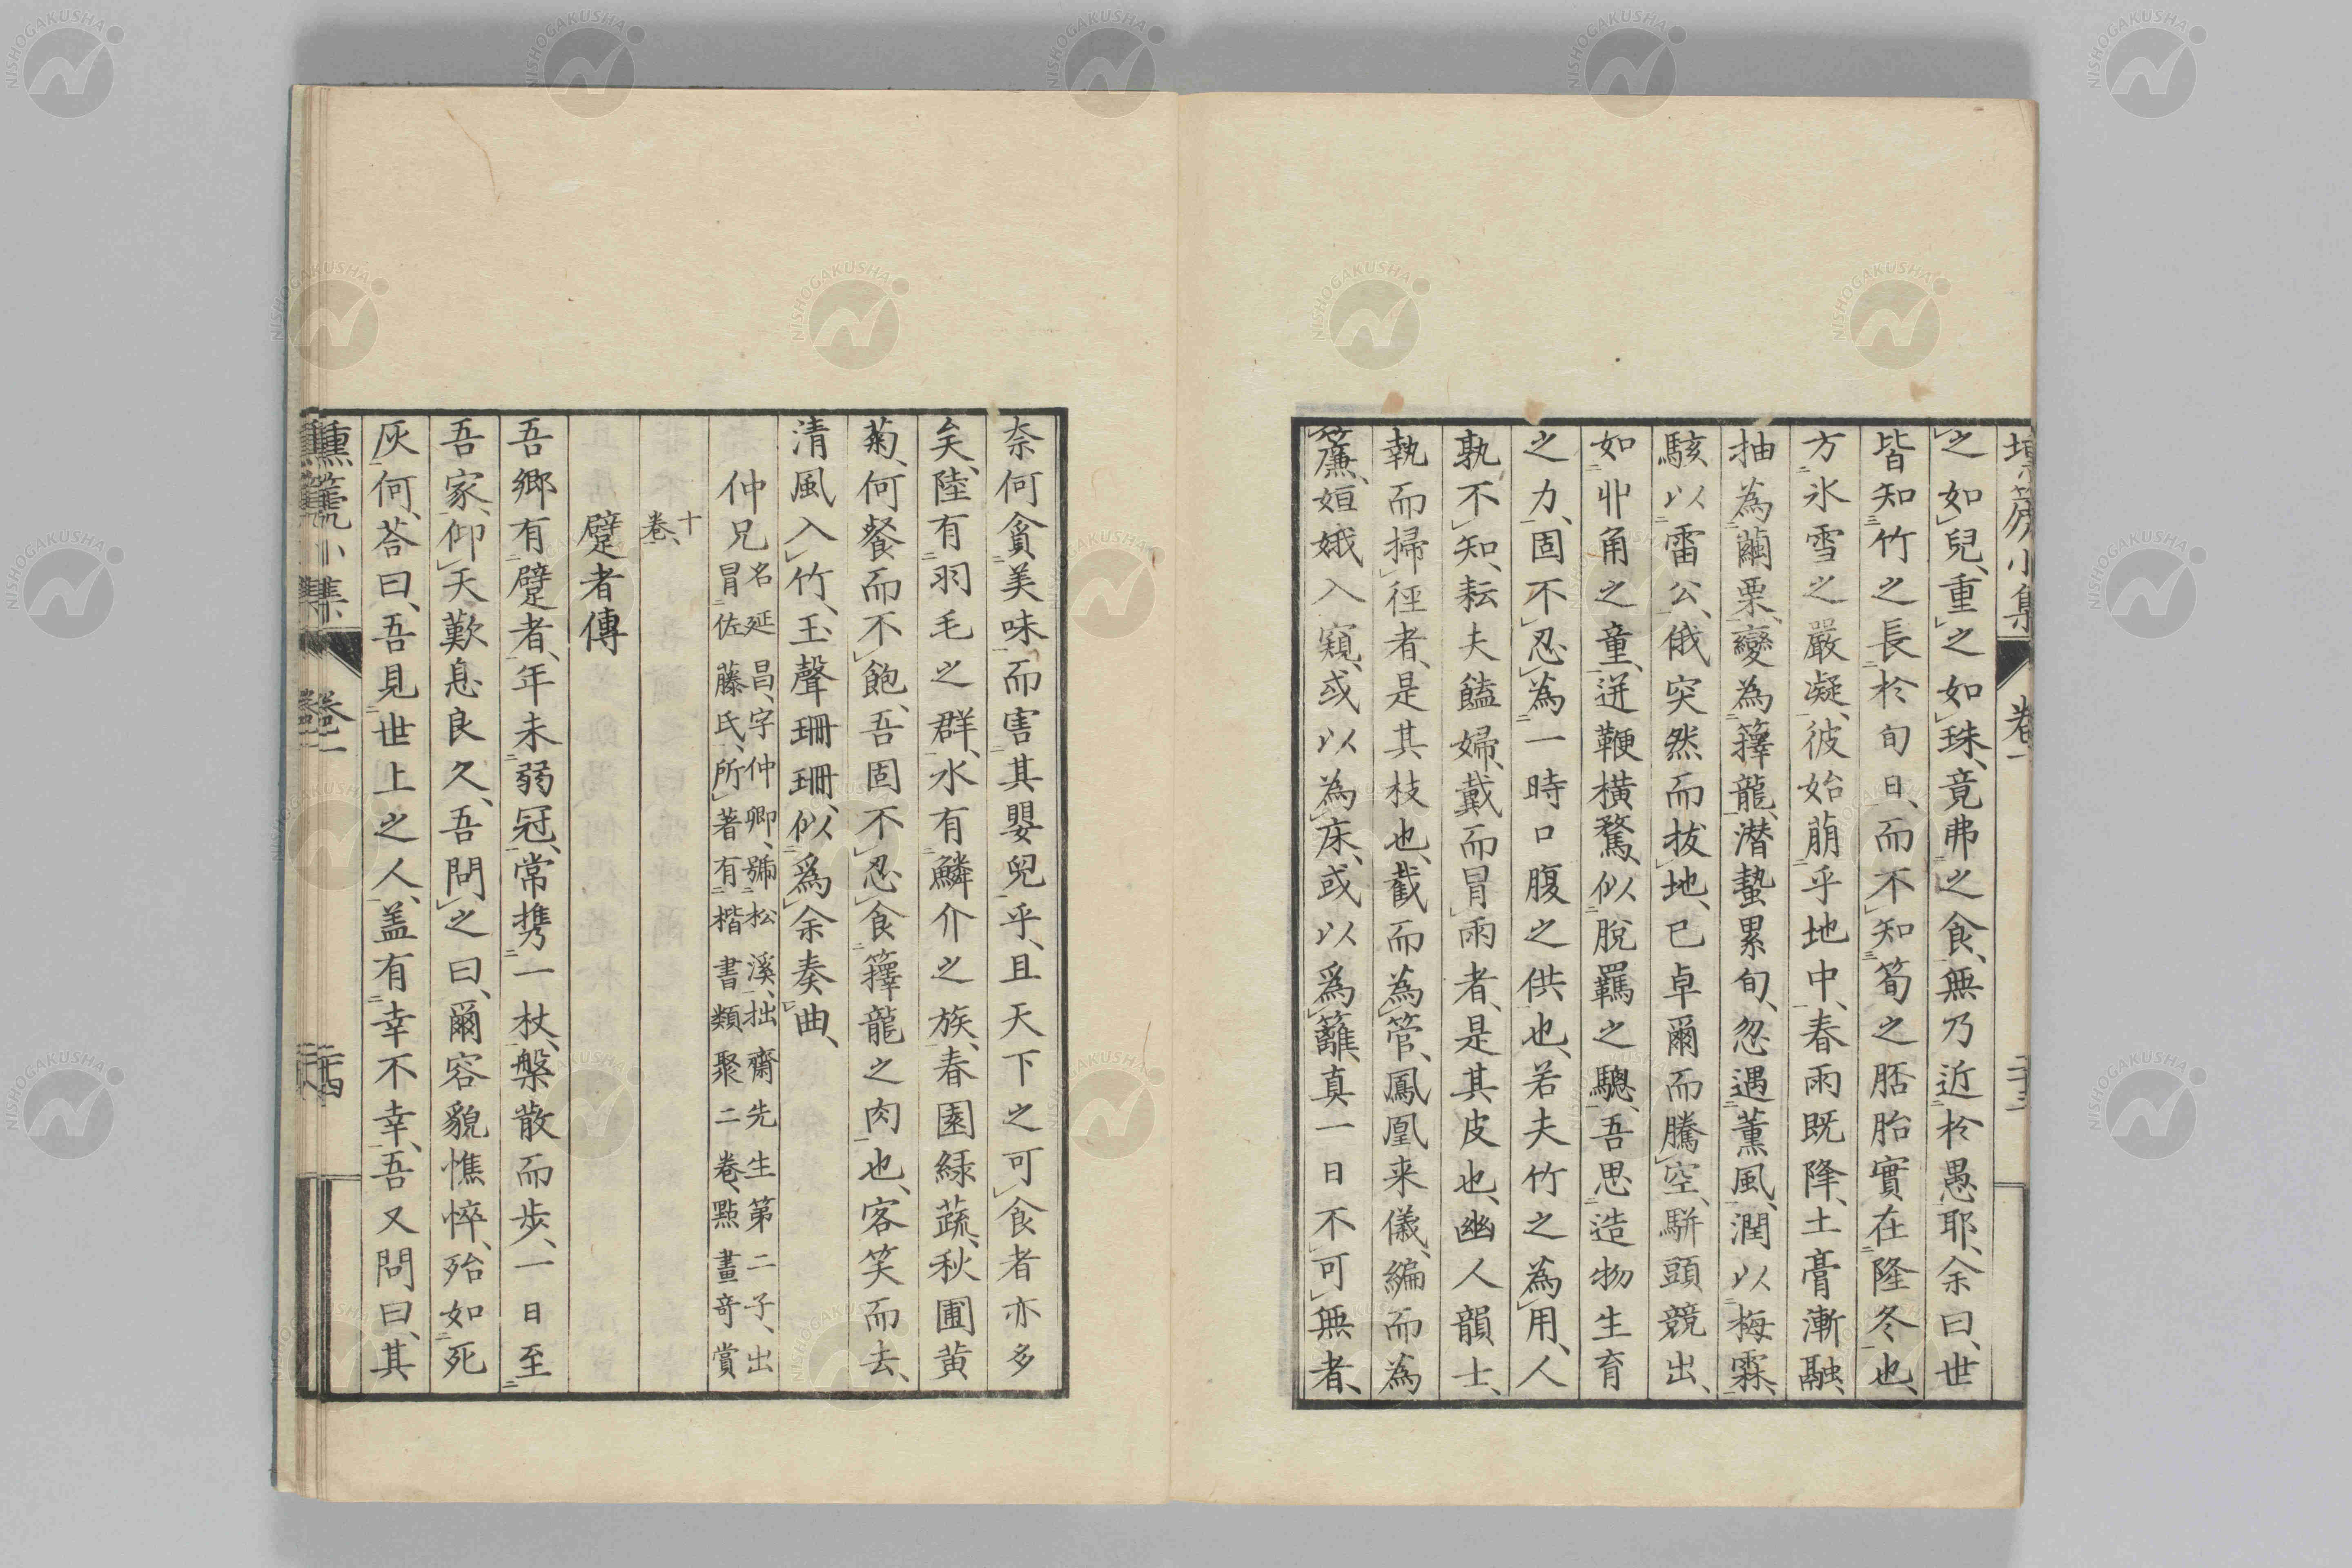 塤箎小集 卷一
之如兒、重之如珠、竟弗之食、無乃近於愚耶、余曰、世
皆知竹之長於旬日、而不知筍之胚胎實在隆冬也、
方氷雪之嚴凝、彼始萠乎地中、春雨既降、土膏漸融、
抽為繭栗、變為籜龍、潛蟄累旬、忽遇薰風、潤以梅霖、
駭以雷公、俄突然而拔地、已卓爾而騰空、駢頭競出、
如丱角之童、迸鞭橫驁、似脫羈之驄、吾思造物生育
之力、固不忍為一時口腹之供也、若夫竹之為用、人
孰不知、耘夫饁婦、戴而冒雨者、是其皮也、幽人韻士、
執而掃徑者、是其枝也、截而為管、鳳凰来儀、編而為
簾、姮娥入窺、或以為床、或以爲籬、真一日不可無者、
奈何貪美味而害其嬰兒乎、且天下之可食者亦多
矣、陸有羽毛之群、水有鱗介之族、春園緑蔬、秋圃黄
菊、何餐而不飽、吾固不忍食籜龍之肉也、客笑而去、
清風入竹、玉聲珊珊、似爲余奏曲、
仲兄名延昌、字仲卿、號松溪、拙齋先生第二子、出
冒佐藤氏、所著有楷書類聚二卷、點畫奇賞
十
卷、
躄者傳
吾鄉有躄者、年未弱冠、常携一杖、槃散而步、一日至
吾家、仰天歎息良久、吾問之曰、爾容貌憔悴、殆如死
灰何、荅曰、吾見世上之人、盖有幸不幸、吾又問曰、其
塤箎小集 卷一